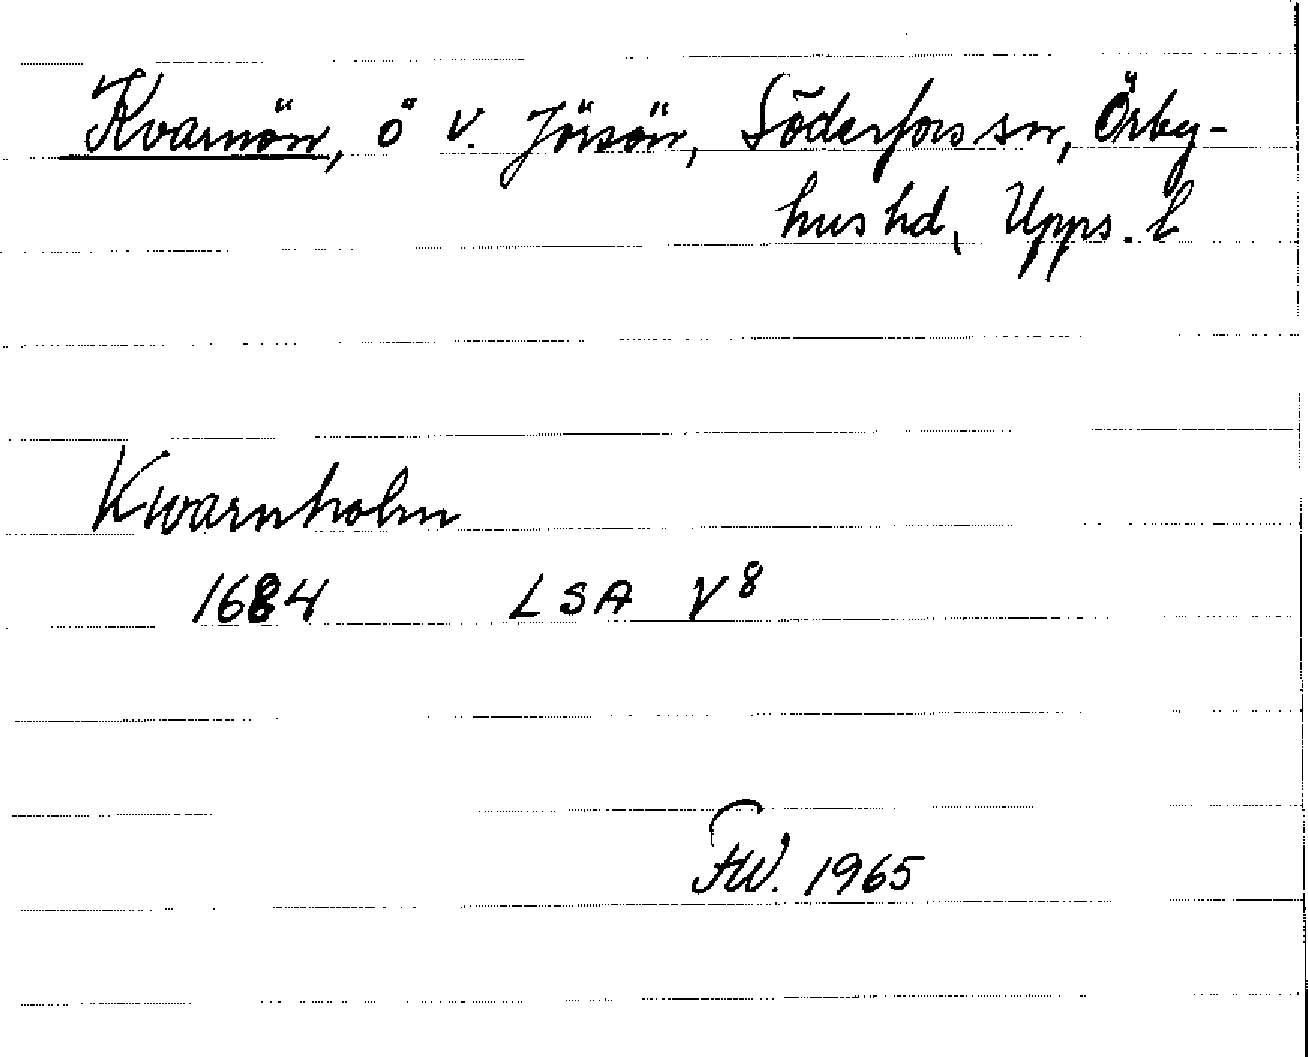 Kvarnön, ö V. Jörsön, Söderfors sn, Örby-
hus hd, Upps. l
Kwarnholm
1684 LSA V8
FW. 1965